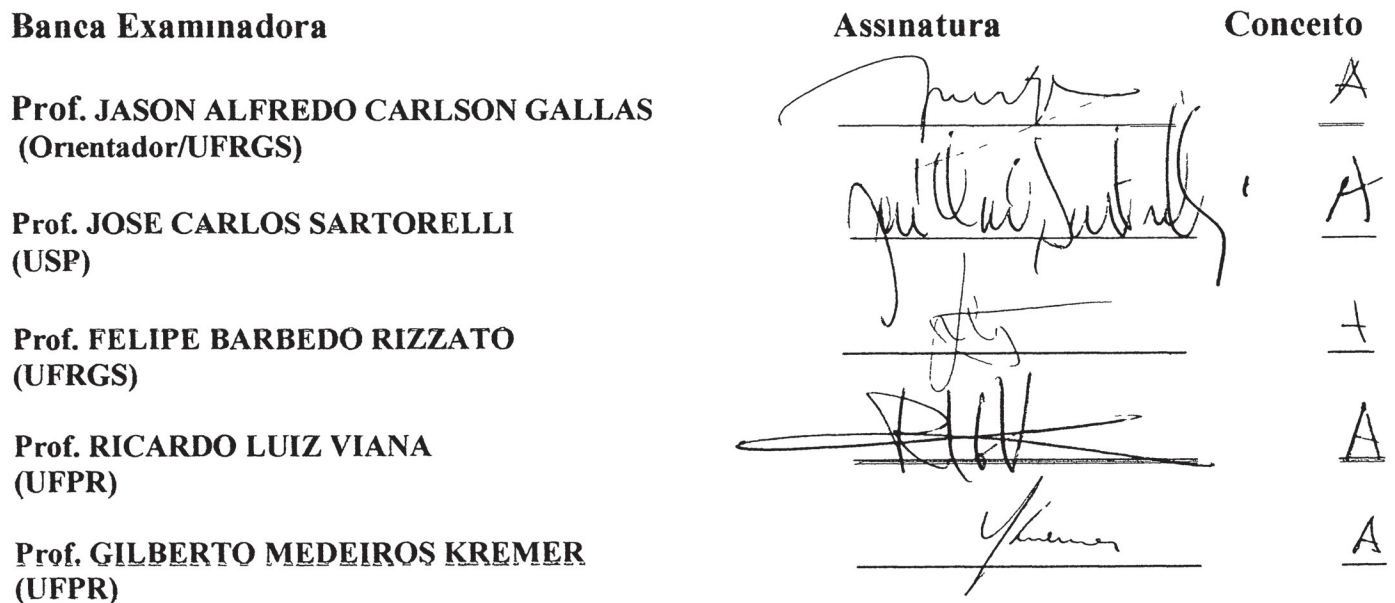 Banca Examinadora Assinatura Conceito
Prof. JASON ALFREDO CARLSON GALLAS A
(Orientador/UFRGS)
Prof. JOSE CARLOS SARTORELLI A
(USP)
Prof. FELIPE BARBEDO RIZZATO
(UFRGS)
Prof. RICARDO LUIZ VIANA A
(UFPR)
Prof. GILBERTO MEDEIROS KREMER A
(UFPR)